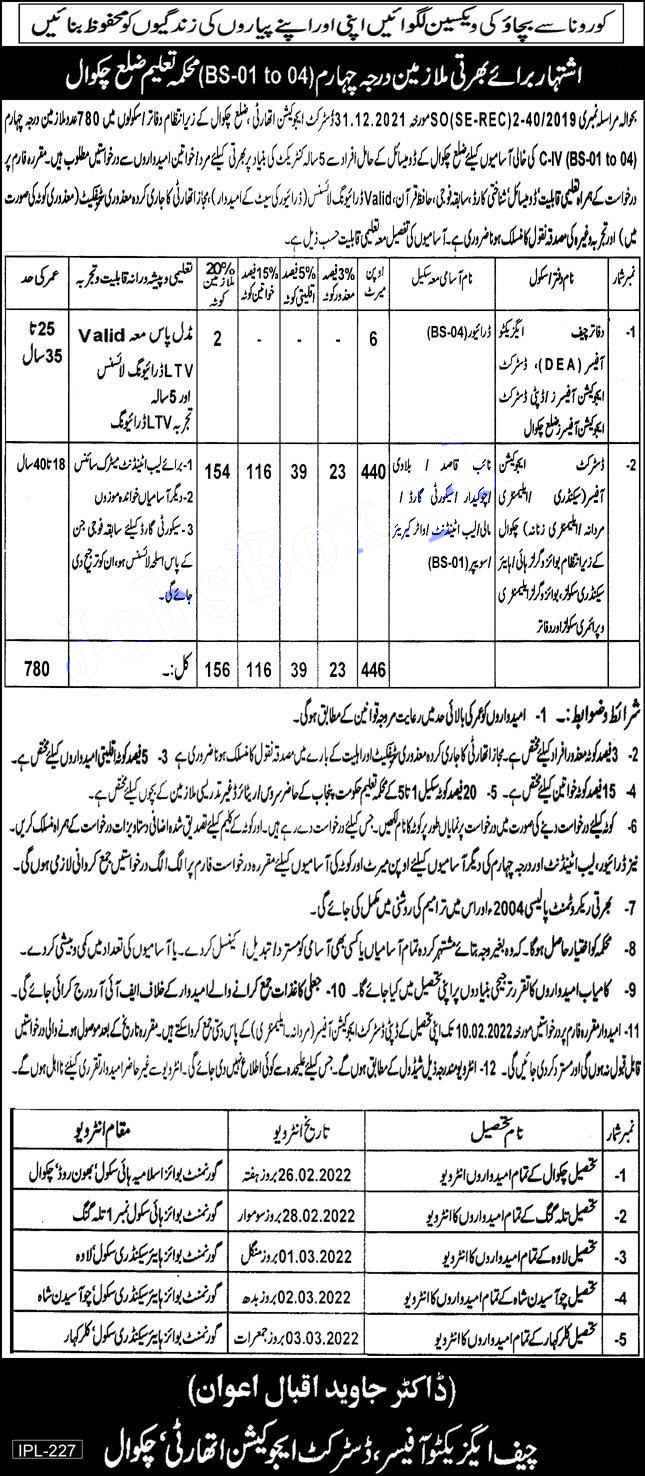 کورونا سے بچاؤ کی ویکسین لگوائیں اپنی اور اپنے پیاروں کی زندگیوں کو محفوظ بنائیں
اشتہار برائے بھرتی ملازمین درجہ چہارم (BS-01 to 04) محکمہ تعلیم ضلع چکوال
بحوالہ مراسلہ نمبری SO(SE-REC)2-40/2019 مورخہ 31.12.2021 ڈسٹرکٹ ایجوکیشن اتھارٹی ضلع چکوال کے زیر انتظام دفاتر/سکولوں میں 780 عدد ملازمین درجہ چہارم
C-IV (BS-01 to 04) کی خالی آسامیوں کیلئے ضلع چکوال کے ڈومیسائل کے حامل افراد سے 5 سالہ کنٹریکٹ کی بنیاد پر بھرتی کیلئے مرد/خواتین امیدواروں سے درخواستیں مطلوب ہیں۔ مقررہ فارم پر
درخواست کے ہمراہ تعلیمی قابلیت، ڈومیسائل، شناختی کارڈ، سابقہ فوجی، حافظ قرآن، Valid ڈرائیونگ لائسنس (ڈرائیور کی سیٹ کے امیدوار)، مجاز اتھارٹی کا جاری کردہ معذوری سرٹیفکیٹ (معذوری کوٹہ کی صورت
میں) اور تجربہ وغیرہ کی مصدقہ نقول کا منسلک ہونا ضروری ہے۔ آسامیوں کی تفصیل معہ تعلیمی قابلیت حسب ذیل ہے۔
نمبر شمار نام دفتر/سکول نام آسامی معہ سکیل اوپن میرٹ 3% فیصد معذور کوٹہ 5% فیصد اقلیتی کوٹہ 15% فیصد خواتین کوٹہ 20% ملازمین کوٹہ تعلیمی و پیشہ ورانہ قابلیت و تجربہ عمر کی حد
1- دفاتر چیف ایگزیکٹو آفیسر (DEA)، ڈسٹرکٹ ایجوکیشن آفیسرز/ڈپٹی ڈسٹرکٹ ایجوکیشن آفیسرز ضلع چکوال ڈرائیور (BS-04) 6 - - - 2 مڈل پاس معہ Valid LTV ڈرائیونگ لائسنس اور 5 سالہ تجربہ LTV ڈرائیونگ 25 تا 35 سال
2- ڈسٹرکٹ ایجوکیشن آفیسر (سیکنڈری/ایلیمنٹری مردانہ/ایلیمنٹری زنانہ) چکوال کے زیر انتظام بوائز و گرلز ہائی/ہائیر سیکنڈری سکولز، بوائز و گرلز ایلیمنٹری و پرائمری سکولز اور دفاتر نائب قاصد/بیلاوی/چوکیدار/سیکورٹی گارڈ/مالی/لیب اٹینڈنٹ/واٹر کیریئر/سویپر (BS-01) 440 23 39 116 154 1- برائے لیب اٹینڈنٹ میٹرک سائنس 2- دیگر آسامیاں خواندہ موزوں 3- سیکورٹی گارڈ کیلئے سابقہ فوجی جن کے پاس اسلحہ لائسنس ہو، ان کو ترجیح دی جائے گی۔ 18 تا 40 سال
کل:۔ 446 23 39 116 156 780
شرائط و ضوابط:۔ 1- امیدواروں کو عمر کی بالائی حد میں رعایت مروجہ قوانین کے مطابق ہوگی۔
2- 3 فیصد کوٹہ معذور افراد کیلئے مختص ہے۔ مجاز اتھارٹی کا جاری کردہ معذوری سرٹیفکیٹ اور اہلیت کے بارے میں مصدقہ نقول کا منسلک ہونا ضروری ہے 3- 5 فیصد کوٹہ اقلیتی امیدواروں کیلئے مختص ہے۔
4- 15 فیصد کوٹہ خواتین کیلئے مختص ہے۔ 5- 20 فیصد کوٹہ سکیل 1 تا 5 کے محکمہ تعلیم حکومت پنجاب کے حاضر سروس/ریٹائرڈ غیر تدریسی ملازمین کے بچوں کیلئے مختص ہے۔
6- کوٹہ کیلئے درخواست دینے کی صورت میں درخواست پر نمایاں طور پر کوٹہ کا نام لکھیں۔ جس کیلئے درخواست دے رہے ہیں۔ اور کوٹہ کے کلیم کیلئے تصدیق شدہ اضافی دستاویزات درخواست کے ہمراہ منسلک کریں۔
نیز ڈرائیور، لیب اٹینڈنٹ اور درجہ چہارم کی دیگر آسامیوں کیلئے اوپن میرٹ اور کوٹہ کی آسامیوں کیلئے مقررہ درخواست فارم پر الگ الگ درخواستیں جمع کروانی لازمی ہوں گی۔
7- بھرتی ریکروٹمنٹ پالیسی 2004ء اور اس میں ترامیم کی روشنی میں مکمل کی جائے گی۔
8- محکمہ کو اختیار حاصل ہوگا۔ کہ وہ بغیر وجہ بتائے مشتہر کردہ تمام آسامیاں یا کسی بھی آسامی کو مسترد/تبدیل/کینسل کر دے۔ یا آسامیوں کی تعداد میں کمی و بیشی کر دے۔
9- کامیاب امیدواروں کا تقرر ترجیحی بنیادوں پر اپنی تحصیل میں کیا جائے گا۔ 10- جعلی کاغذات جمع کرانے والے امیدوار کے خلاف ایف آئی آر درج کرائی جائے گی۔
11- امیدوار مقررہ فارم پر درخواستیں مورخہ 10.02.2022 تک اپنی تحصیل کے ڈپٹی ڈسٹرکٹ ایجوکیشن آفیسر (مردانہ۔ ایلیمنٹری) کے پاس دستی جمع کروا سکتے ہیں۔ مقررہ تاریخ کے بعد موصول ہونے والی درخواستیں
قابل قبول نہ ہوں گی اور مسترد کر دی جائیں گی۔ 12- انٹرویو مندرجہ ذیل شیڈول کے مطابق ہوں گے۔ جس کیلئے علیحدہ سے کوئی اطلاع نہیں دی جائے گی۔ انٹرویو سے غیر حاضر امیدوار تقرری کیلئے نا اہل ہوں گے۔
نمبر شمار نام تحصیل تاریخ انٹرویو مقام انٹرویو
1- تحصیل چکوال کے تمام امیدواروں کا انٹرویو 26.02.2022 بروز ہفتہ گورنمنٹ بوائز اسلامیہ ہائی سکول، بھون روڈ، چکوال
2- تحصیل تلہ گنگ کے تمام امیدواروں کا انٹرویو 28.02.2022 بروز سوموار گورنمنٹ بوائز ہائی سکول نمبر 1 تلہ گنگ
3- تحصیل لاوہ کے تمام امیدواروں کا انٹرویو 01.03.2022 بروز منگل گورنمنٹ بوائز ہایئر سیکنڈری سکول، لاوہ
4- تحصیل چوآسیدن شاہ کے تمام امیدواروں کا انٹرویو 02.03.2022 بروز بدھ گورنمنٹ بوائز ہایئر سیکنڈری سکول، چوآسیدن شاہ
5- تحصیل کلرکہار کے تمام امیدواروں کا انٹرویو 03.03.2022 بروز جمعرات گورنمنٹ بوائز ہایئر سیکنڈری سکول، کلرکہار
(ڈاکٹر جاوید اقبال اعوان)
چیف ایگزیکٹو آفیسر، ڈسٹرکٹ ایجوکیشن اتھارٹی، چکوال
IPL-227